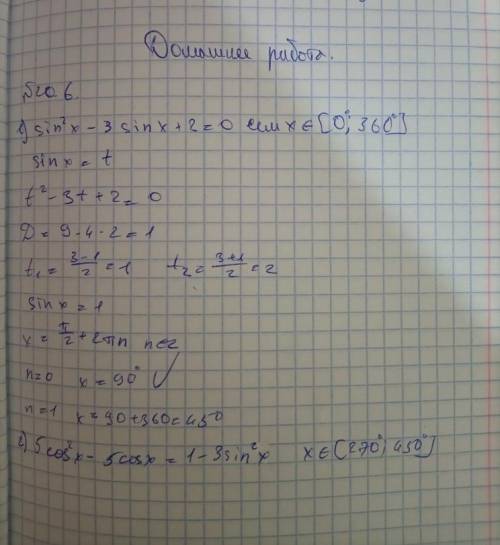 Домашнее работа.
№20.6.
1) sin²x - 3 sinx + 2 = 0 если x ∈ [0°; 360°]
sinx = t
t² - 3t + 2 = 0
D = 9 - 4 · 2 = 1
t₁ = (3-1)/2 = 1 t₂ = (3+1)/2 = 2
sinx = 1
x = π/2 + 2πn n∈z
n=0 x = 90° √
n=1 x = 90+360=450
2) 5cos²x - 5cosx = 1 - 3sin²x x ∈ [270°; 450°]